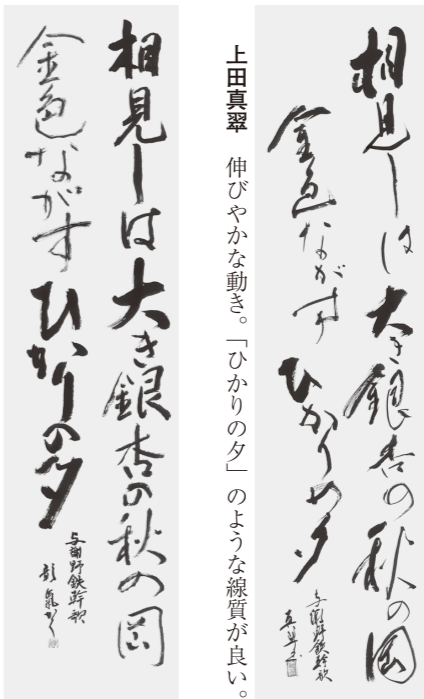 相見しは大き銀杏の秋の岡
金色ながすひかりの夕
与謝野鉄幹歌
真翠
上田真翠　伸びやかな動き。「ひかりの夕」のような線質が良い。
相見しは大き銀杏の秋の岡
金色ながすひかりの夕
与謝野鉄幹歌